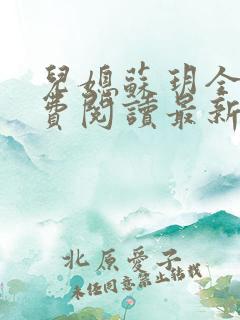 兒媳蘇玥全
費閱讀最新
北原愛子
未经同意禁止转载